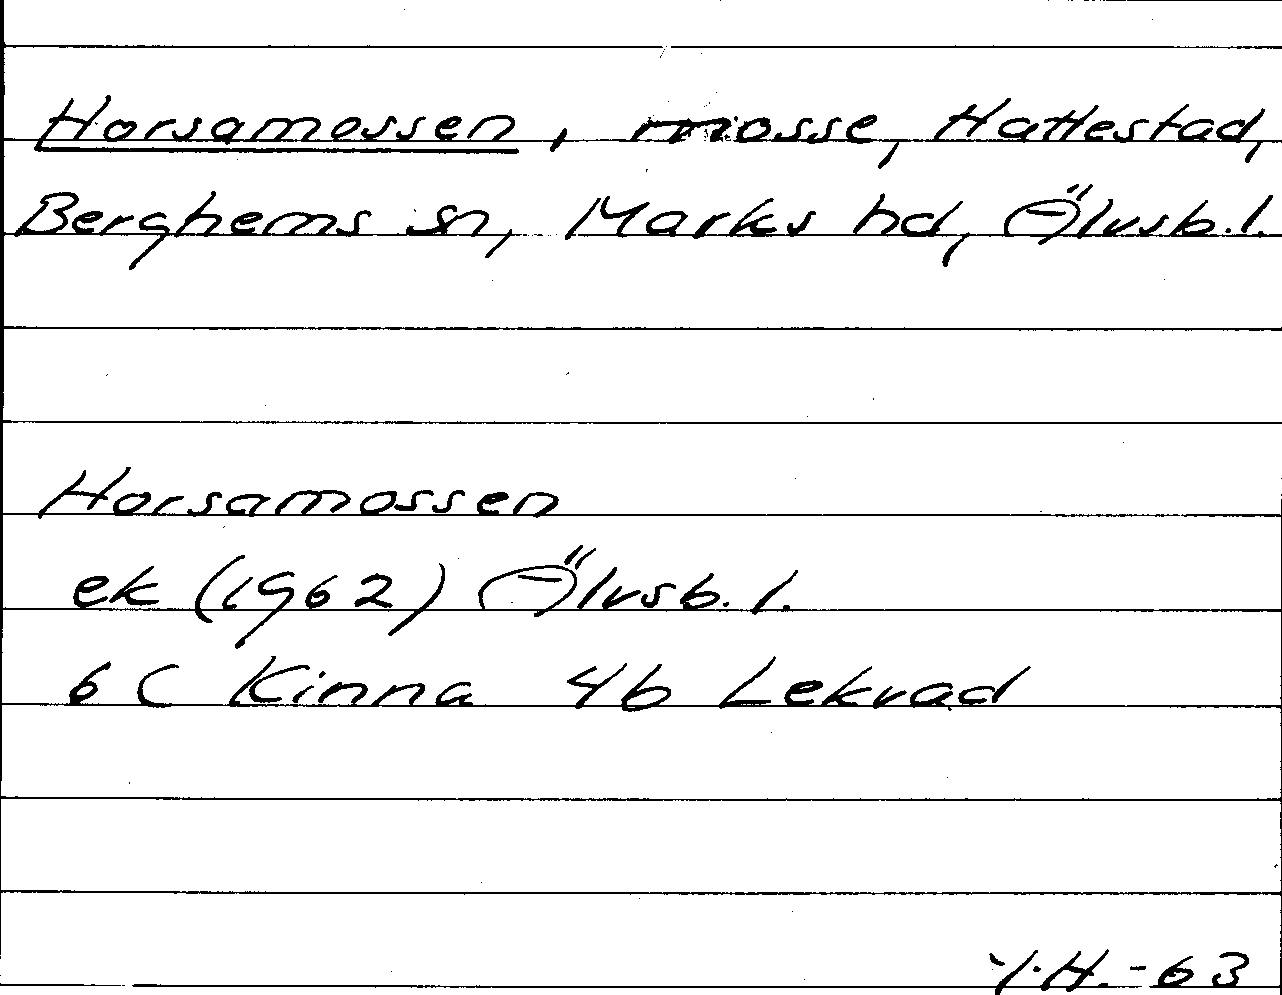 Horsamossen, mosse, Hattestad,
Berghems sn, Marks hd, Älvsb. l.
Horsamossen
ek (1962) Älvsb. l.
6 C Kinna 4b Lekvad
Y.H. -63